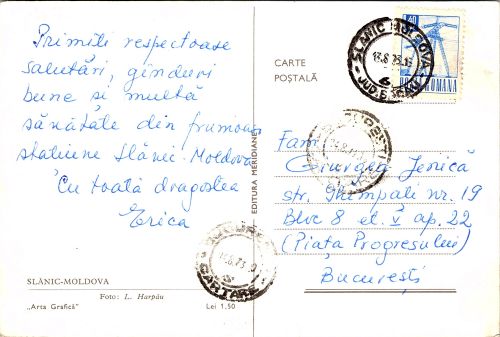 Primiți respectoase
salutări, gînduri
bune și multă
sănătate din frumoasa
stațiune Slănic-Moldova
Cu toată dragostea
Erica
SLĂNIC-MOLDOVA
Foto: L. Harpău
„Arta Grafică”
Lei 1,50
EDITURA MERIDIANE
CARTE
POȘTALĂ
SLANIC MOLDOVA
JUD. BACAU
40
ROMANA
BUCUREȘTI
CARTARE
Fam.
Giurgea Jenică
str. Întîmpali nr. 19
Bloc 8 et. V ap. 22
(Piața Progresului)
București